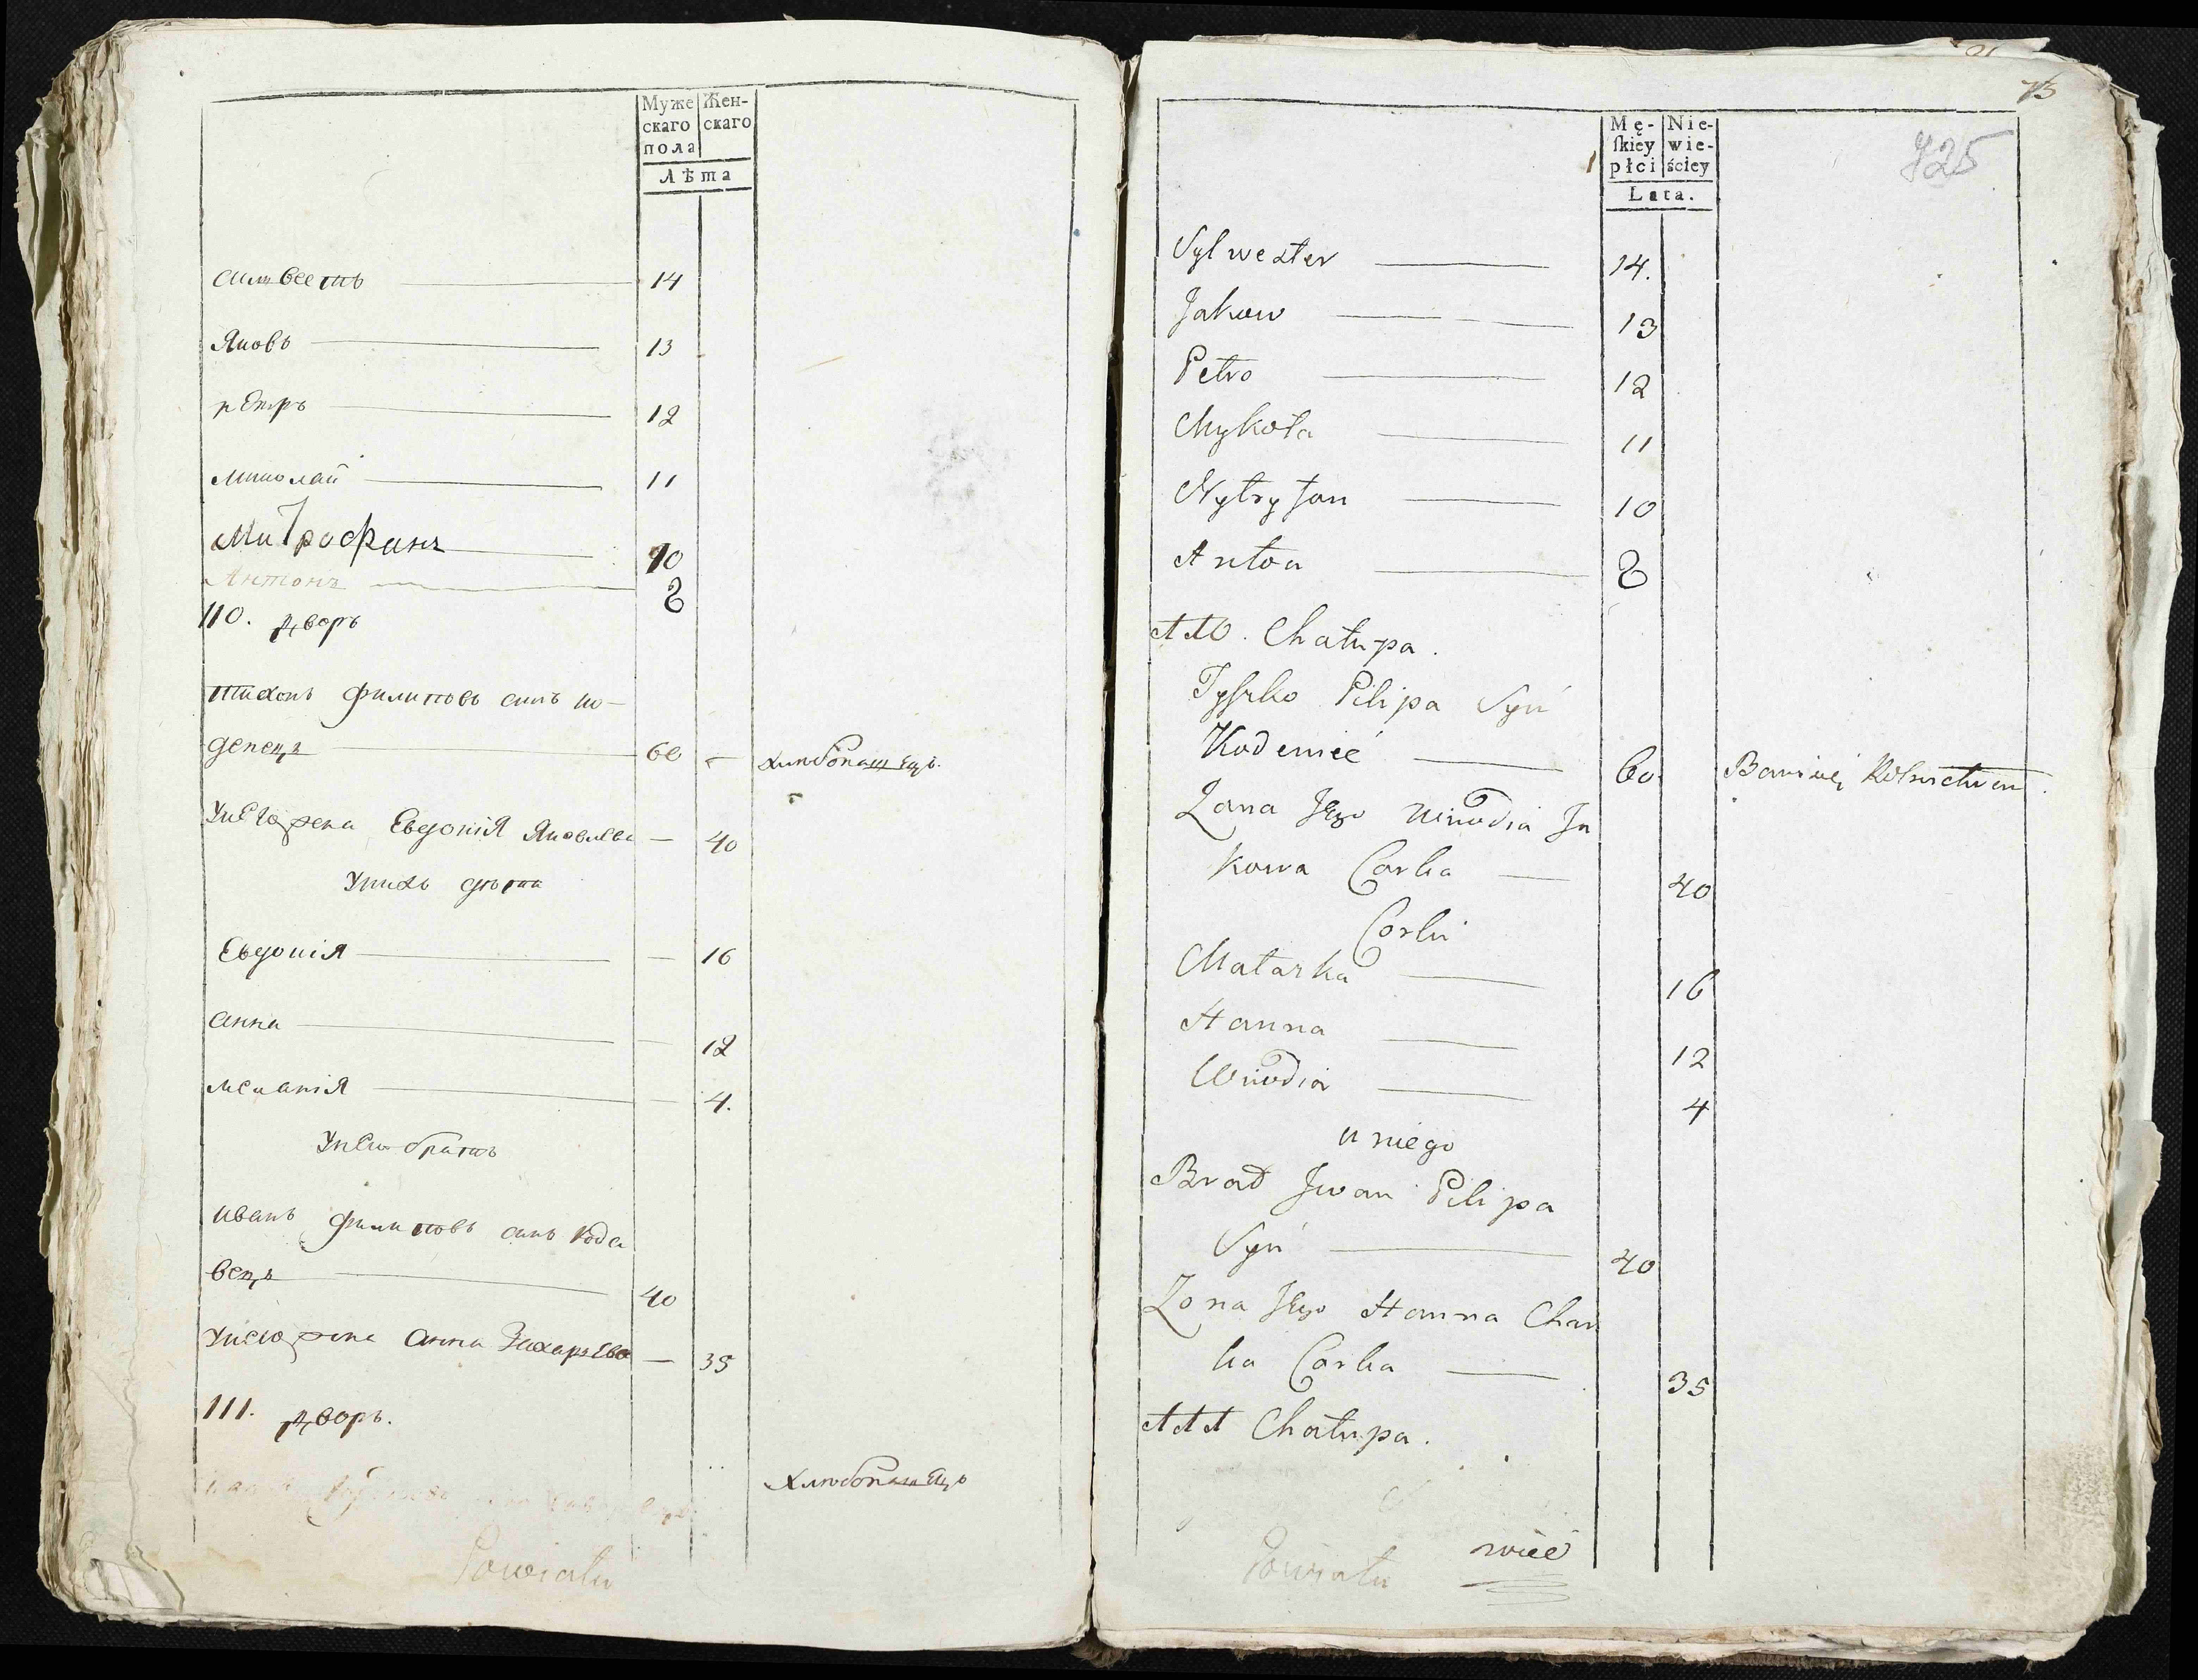 Муже Жен-
скаго скаго
пола
Лѣта
Силвестъ 14
Яковъ 13
пЕтръ 12
Миколай 11
Митрофанъ 10
Антонъ 8
110. дворъ
тихонъ филиповъ синъ ко-
денецъ 60 — хлибопашецъ.
УнЕго жена Евдокиія Яковлева — 40
Унихъ дѣти
Евдокія — 16
анна — 12
меланія — 4.
УнЕго братъ
иванъ филиповъ синъ Коде
вецъ 40
Унего жена Анна ЗахарьЕва — 35
111. дворъ.
хлѣбопашЕцъ
Powiatu
75
725
Mę- Nie-
ſkiey wie-
płci ściey
Lata.
Sylwester 14.
Jakow 13
Petro 12
Mykoła 11
Mytryfan 10
Anton 8
110. Chałupa.
Tyszko Pilipa Syń
Kodenieć 60 Bawi się Rolnictwem.
Zona Jego Wiwdia Ja
kowa Corka 40
Corki
Matarka 16
Hanna 12
Wiwdia 4
u niego
Brat Jwan Pilipa
Syń 40
Zona Jego Hanna Char
ka Corka 35
111 Chałupa.
wieć
Powiatu